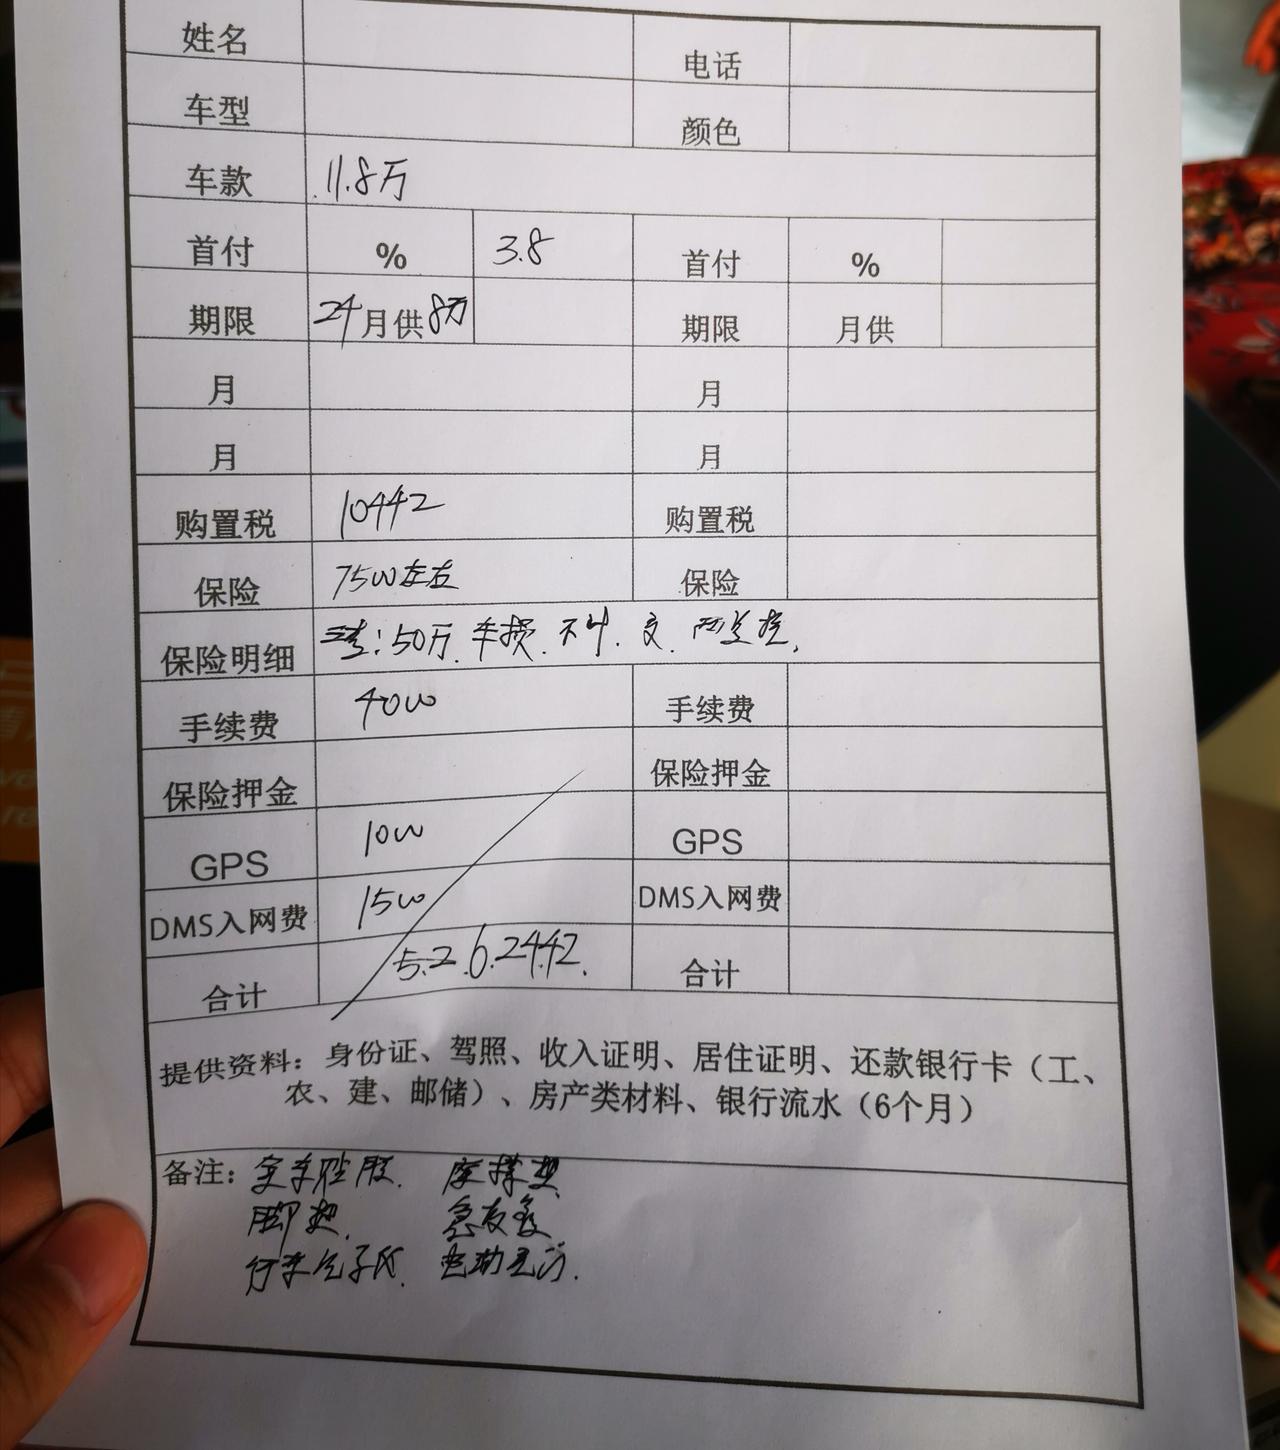 姓名 电话
车型 颜色
车款 11.8万
首付 % 3.8 首付 %
期限 24月供8万 期限 月供
月 月
月 月
购置税 10442 购置税
保险 7500左右 保险
保险明细 三者:50万. 车损. 不计. 交.
手续费 4000 手续费
保险押金 保险押金
GPS 1000 GPS
DMS入网费 1500 DMS入网费
合计 5.2 6.2442. 合计
提供资料：身份证、驾照、收入证明、居住证明、还款银行卡（工、
农、建、邮储）、房产类材料、银行流水（6个月）
备注：全车贴膜.
脚垫.
行车记录仪.